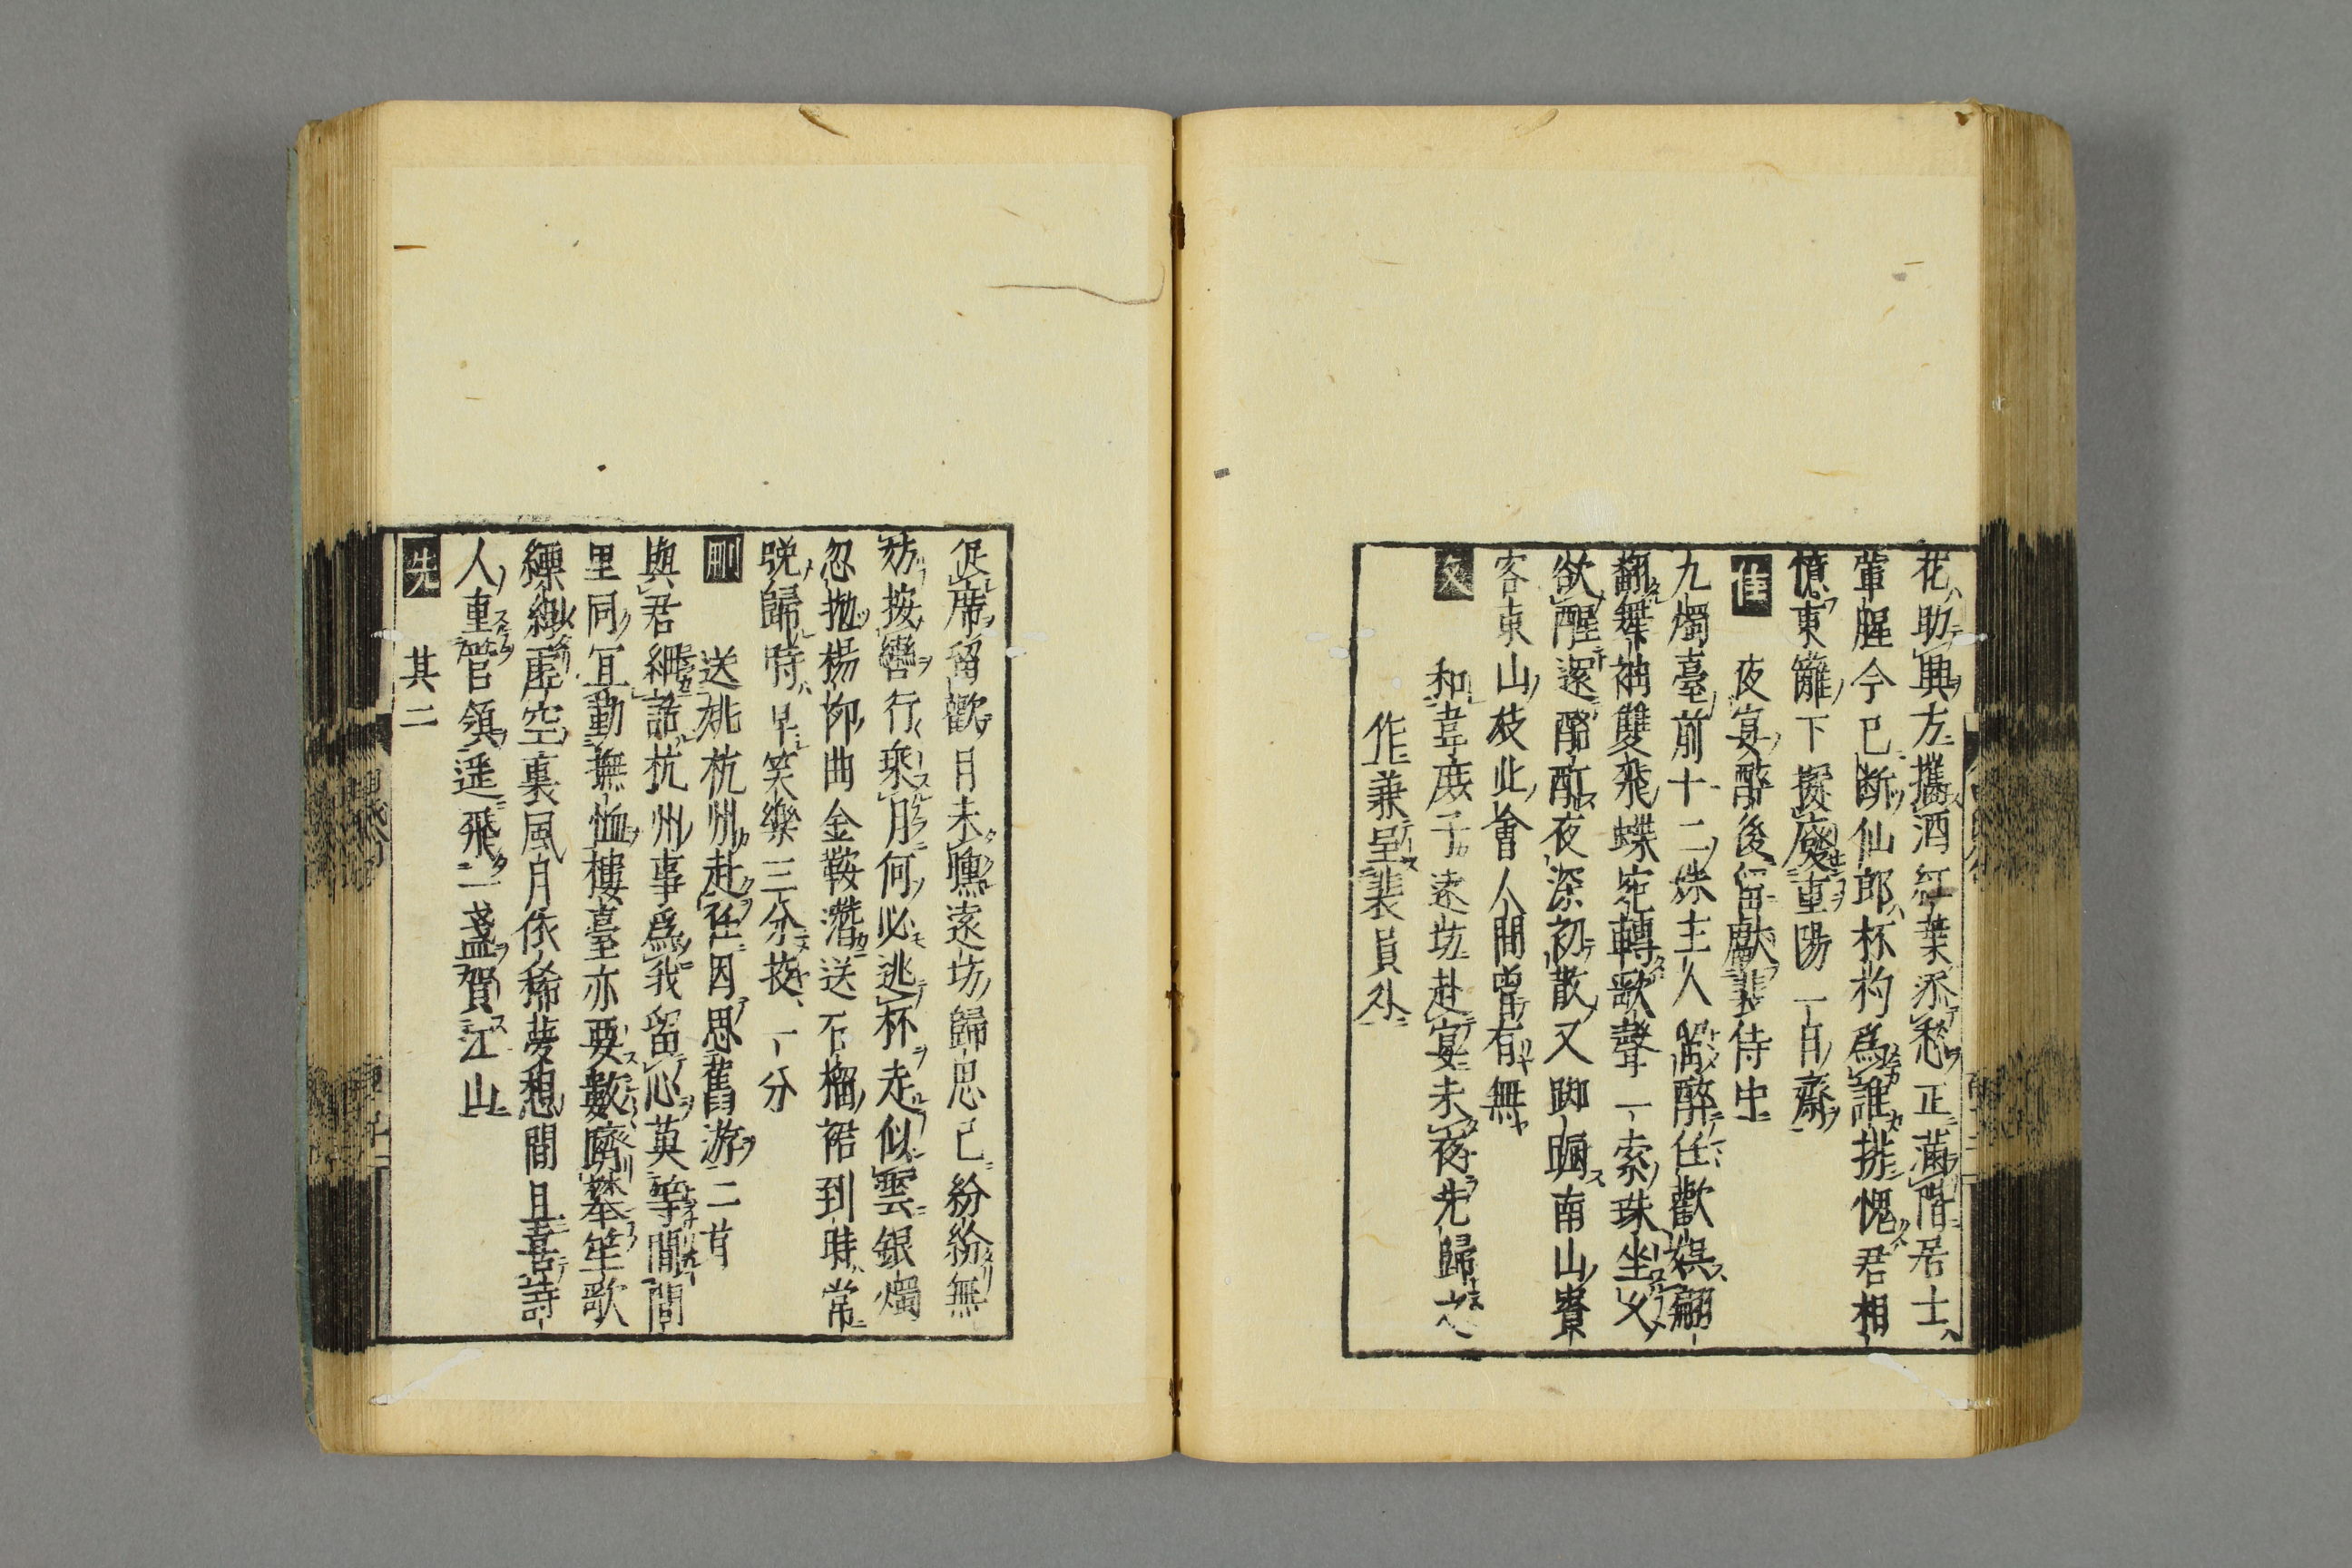 花助興方攜酒紅葉添愁正滿階居士
葷腥今已断仙郎杯杓為誰排愧君相
憶東籬下擬廢重陽一日齋
佳　夜宴醉後留獻裴侍中
九燭臺前十二姝主人留醉任歡娛翩
翻舞袖雙飛蝶宛轉歌聲一索珠坐久
欲醒還酩酊夜深初散又踟蹰南山賓
客東山妓此會人間曾有無
文　和韋庶子遠坊赴宴未夜先歸之
作兼呈裴員外
促席留歡日未曛遠坊歸思已紛紛無
妨按轡行乘月何必逃杯走似雲銀燭
忽拋楊柳曲金鞍潛送石榴裙到時常
晚歸時早笑樂三分挍一分
刪　送姚杭州赴任因思舊游二首
與君細話杭州事為我留心莫等閒閭
里同宜勤撫恤樓臺亦要數躋攀笙歌
縹緲虛空裏風月依稀夢想間且喜詩
人重管領遥飛一盞賀江山
先　其二